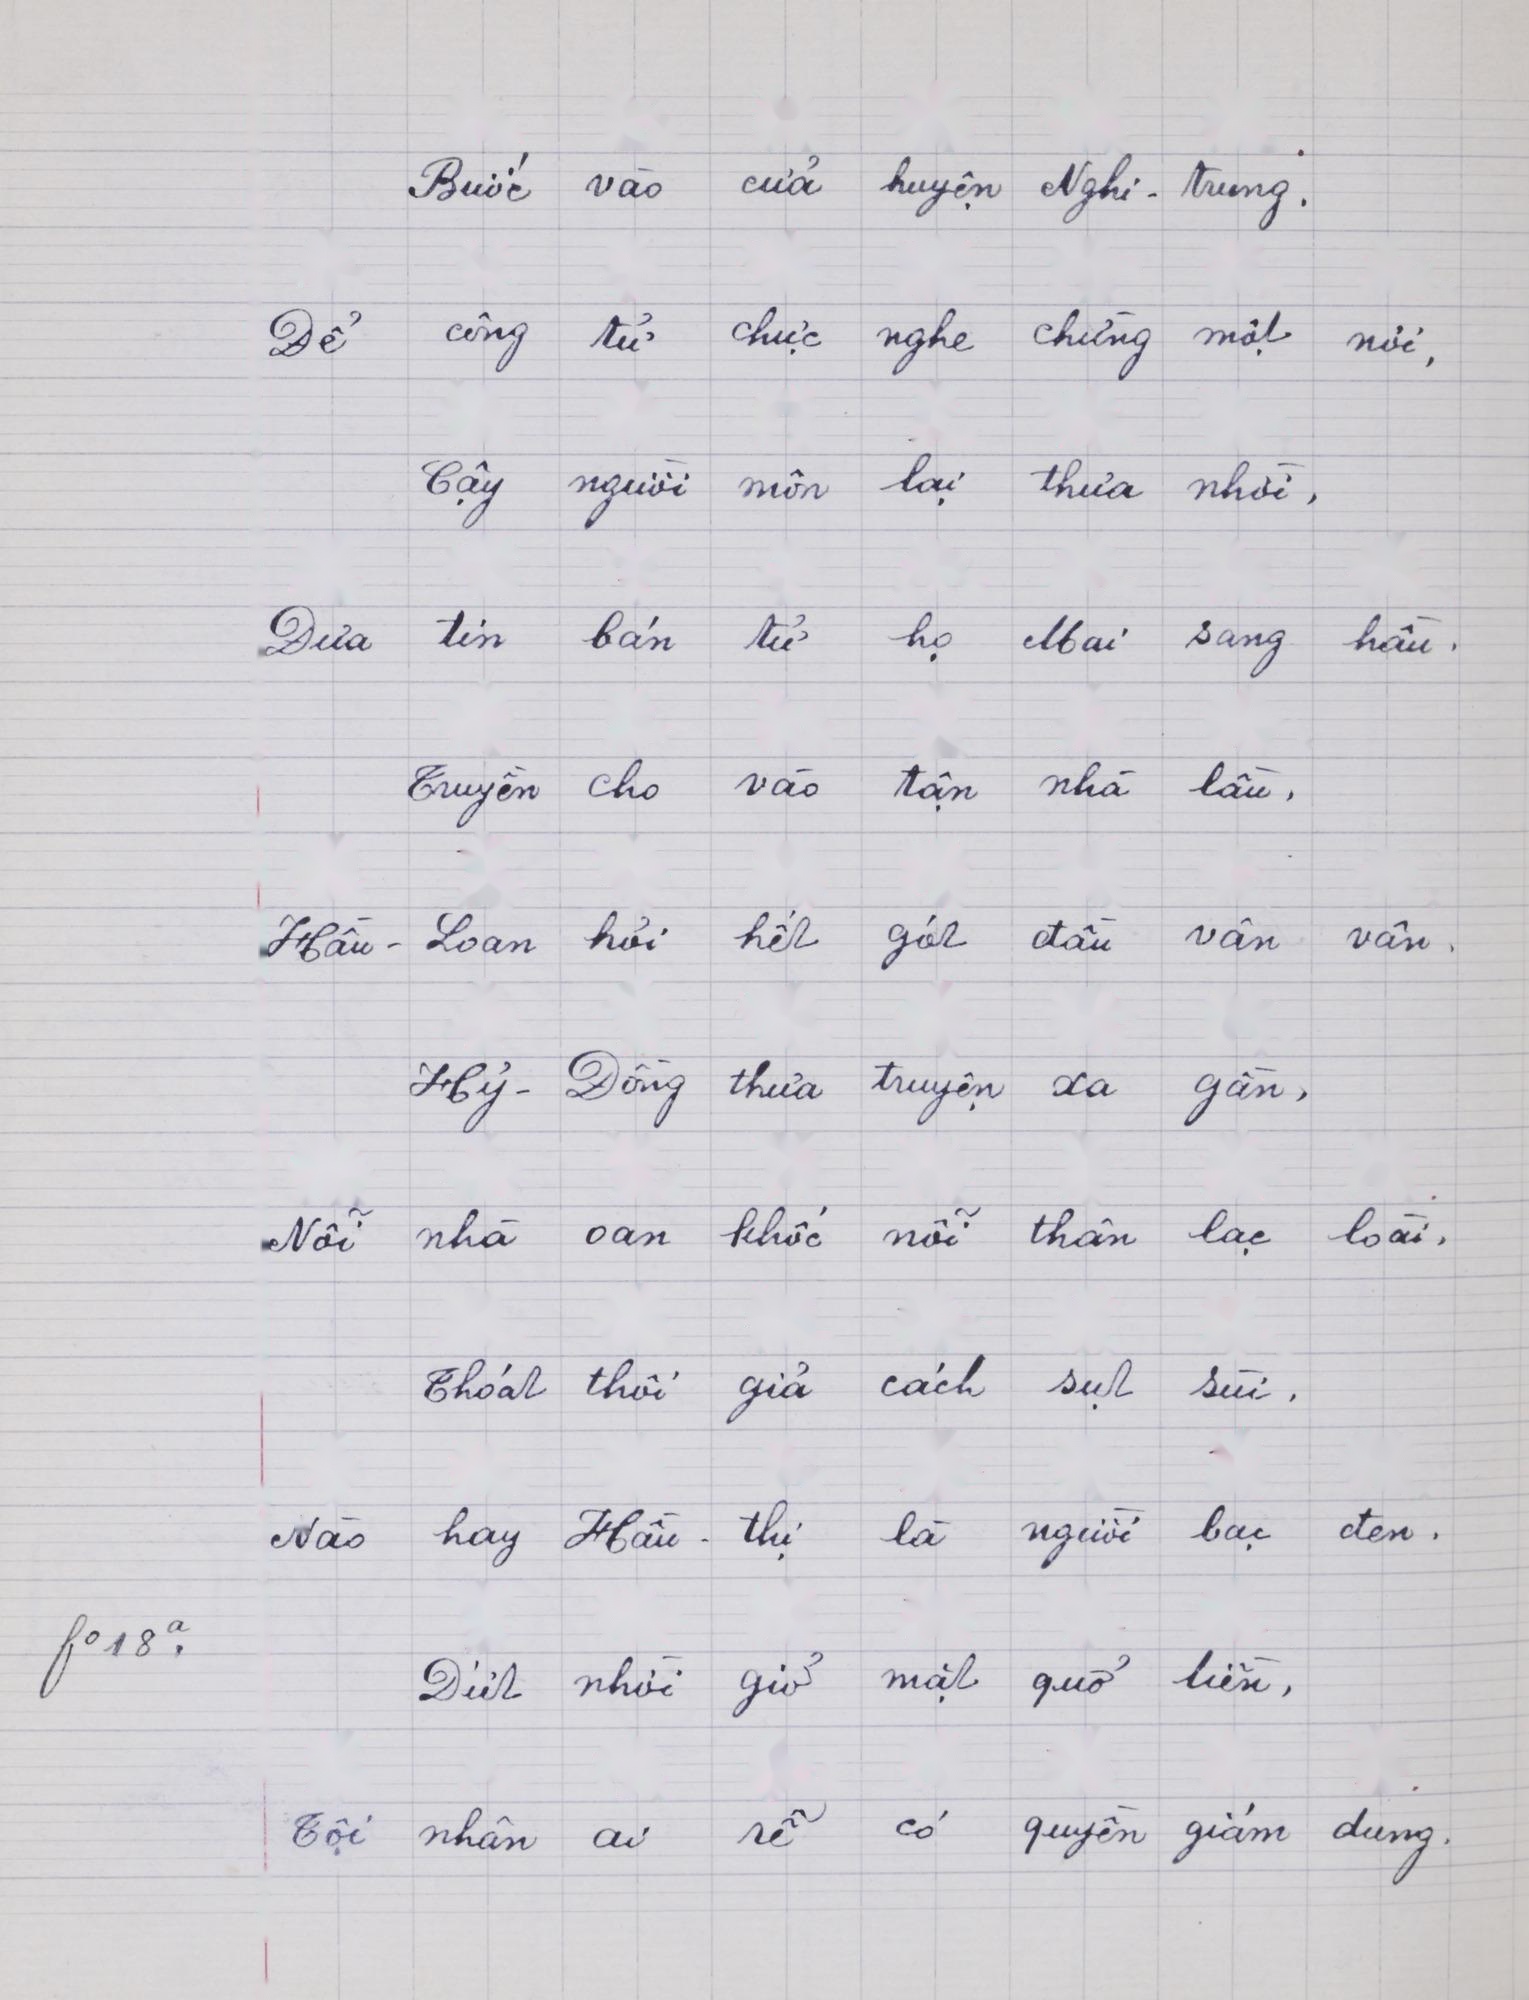 Bước vào cửa huyện Nghi-trưng.
Để công tử chực nghe chừng một nơi,
Cậy người môn lại thưa nhời,
Đưa tin bán tử họ Mai sang hầu.
Truyền cho vào tận nhà lầu,
Hầu-Loan hỏi hết gót đầu vân vân.
Hỷ-Đồng thưa truyện xa gần,
Nỗi nhà oan khốc nỗi thân lạc loài.
Thoát thôi giả cách sụt sùi,
Nào hay Hầu-thị là người bạc đen.
fº 18ª.
Dứt nhời giở mặt quở liền,
Tội nhân ai rễ có quyền giám dung.